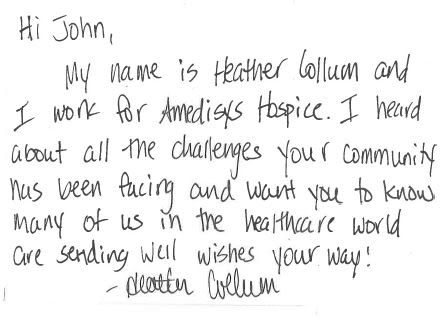 Hi John,
My name is Heather Collum and
I work for Amedisys Hospice. I heard
about all the challenges your community
has been facing and want you to know
many of us in the healthcare world
are sending well wishes your way!
- Heather Collum